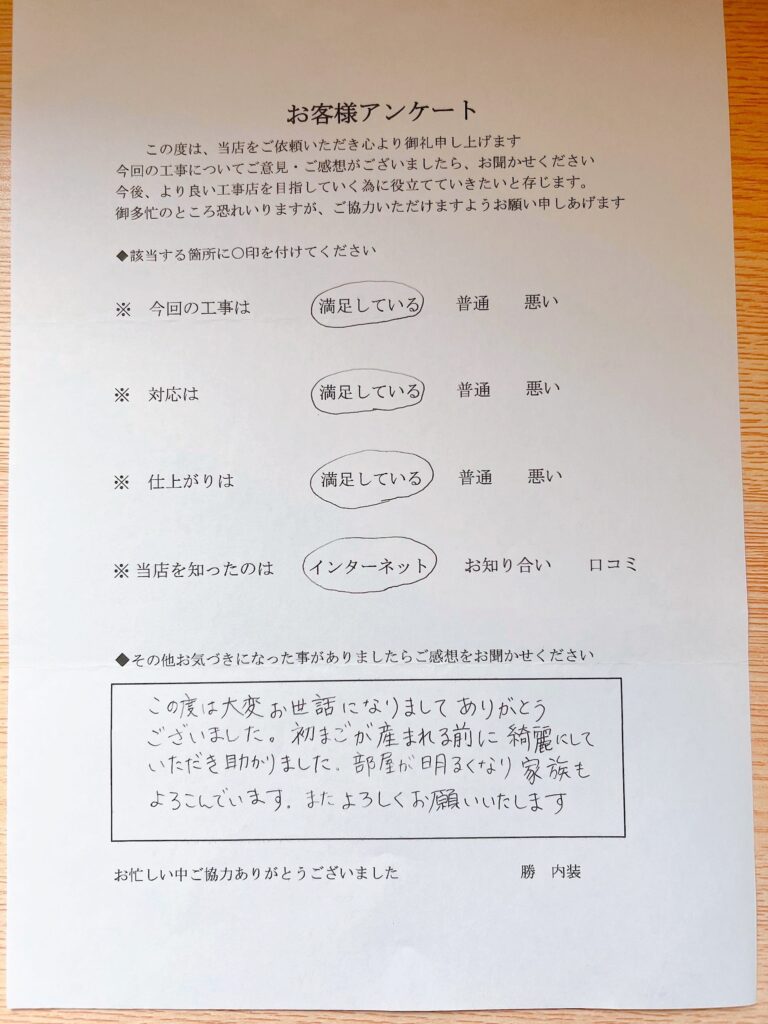 お客様アンケート
この度は、当店をご依頼いただき心より御礼申し上げます
今回の工事についてご意見・ご感想がございましたら、お聞かせください
今後、より良い工事店を目指していく為に役立てていきたいと存じます。
御多忙のところ恐れいりますが、ご協力いただけますようお願い申しあげます
◆該当する箇所に〇印を付けてください
※ 今回の工事は 満足している 普通 悪い
※ 対応は 満足している 普通 悪い
※ 仕上がりは 満足している 普通 悪い
※ 当店を知ったのは インターネット お知り合い 口コミ
◆その他お気づきになった事がありましたらご感想をお聞かせください
この度は大変お世話になりまして ありがとう
ございました。初まごが産まれる前に 綺麗にして
いただき助かりました。部屋が明るくなり 家族も
よろこんでいます。またよろしくお願いいたします
お忙しい中ご協力ありがとうございました 勝 内装